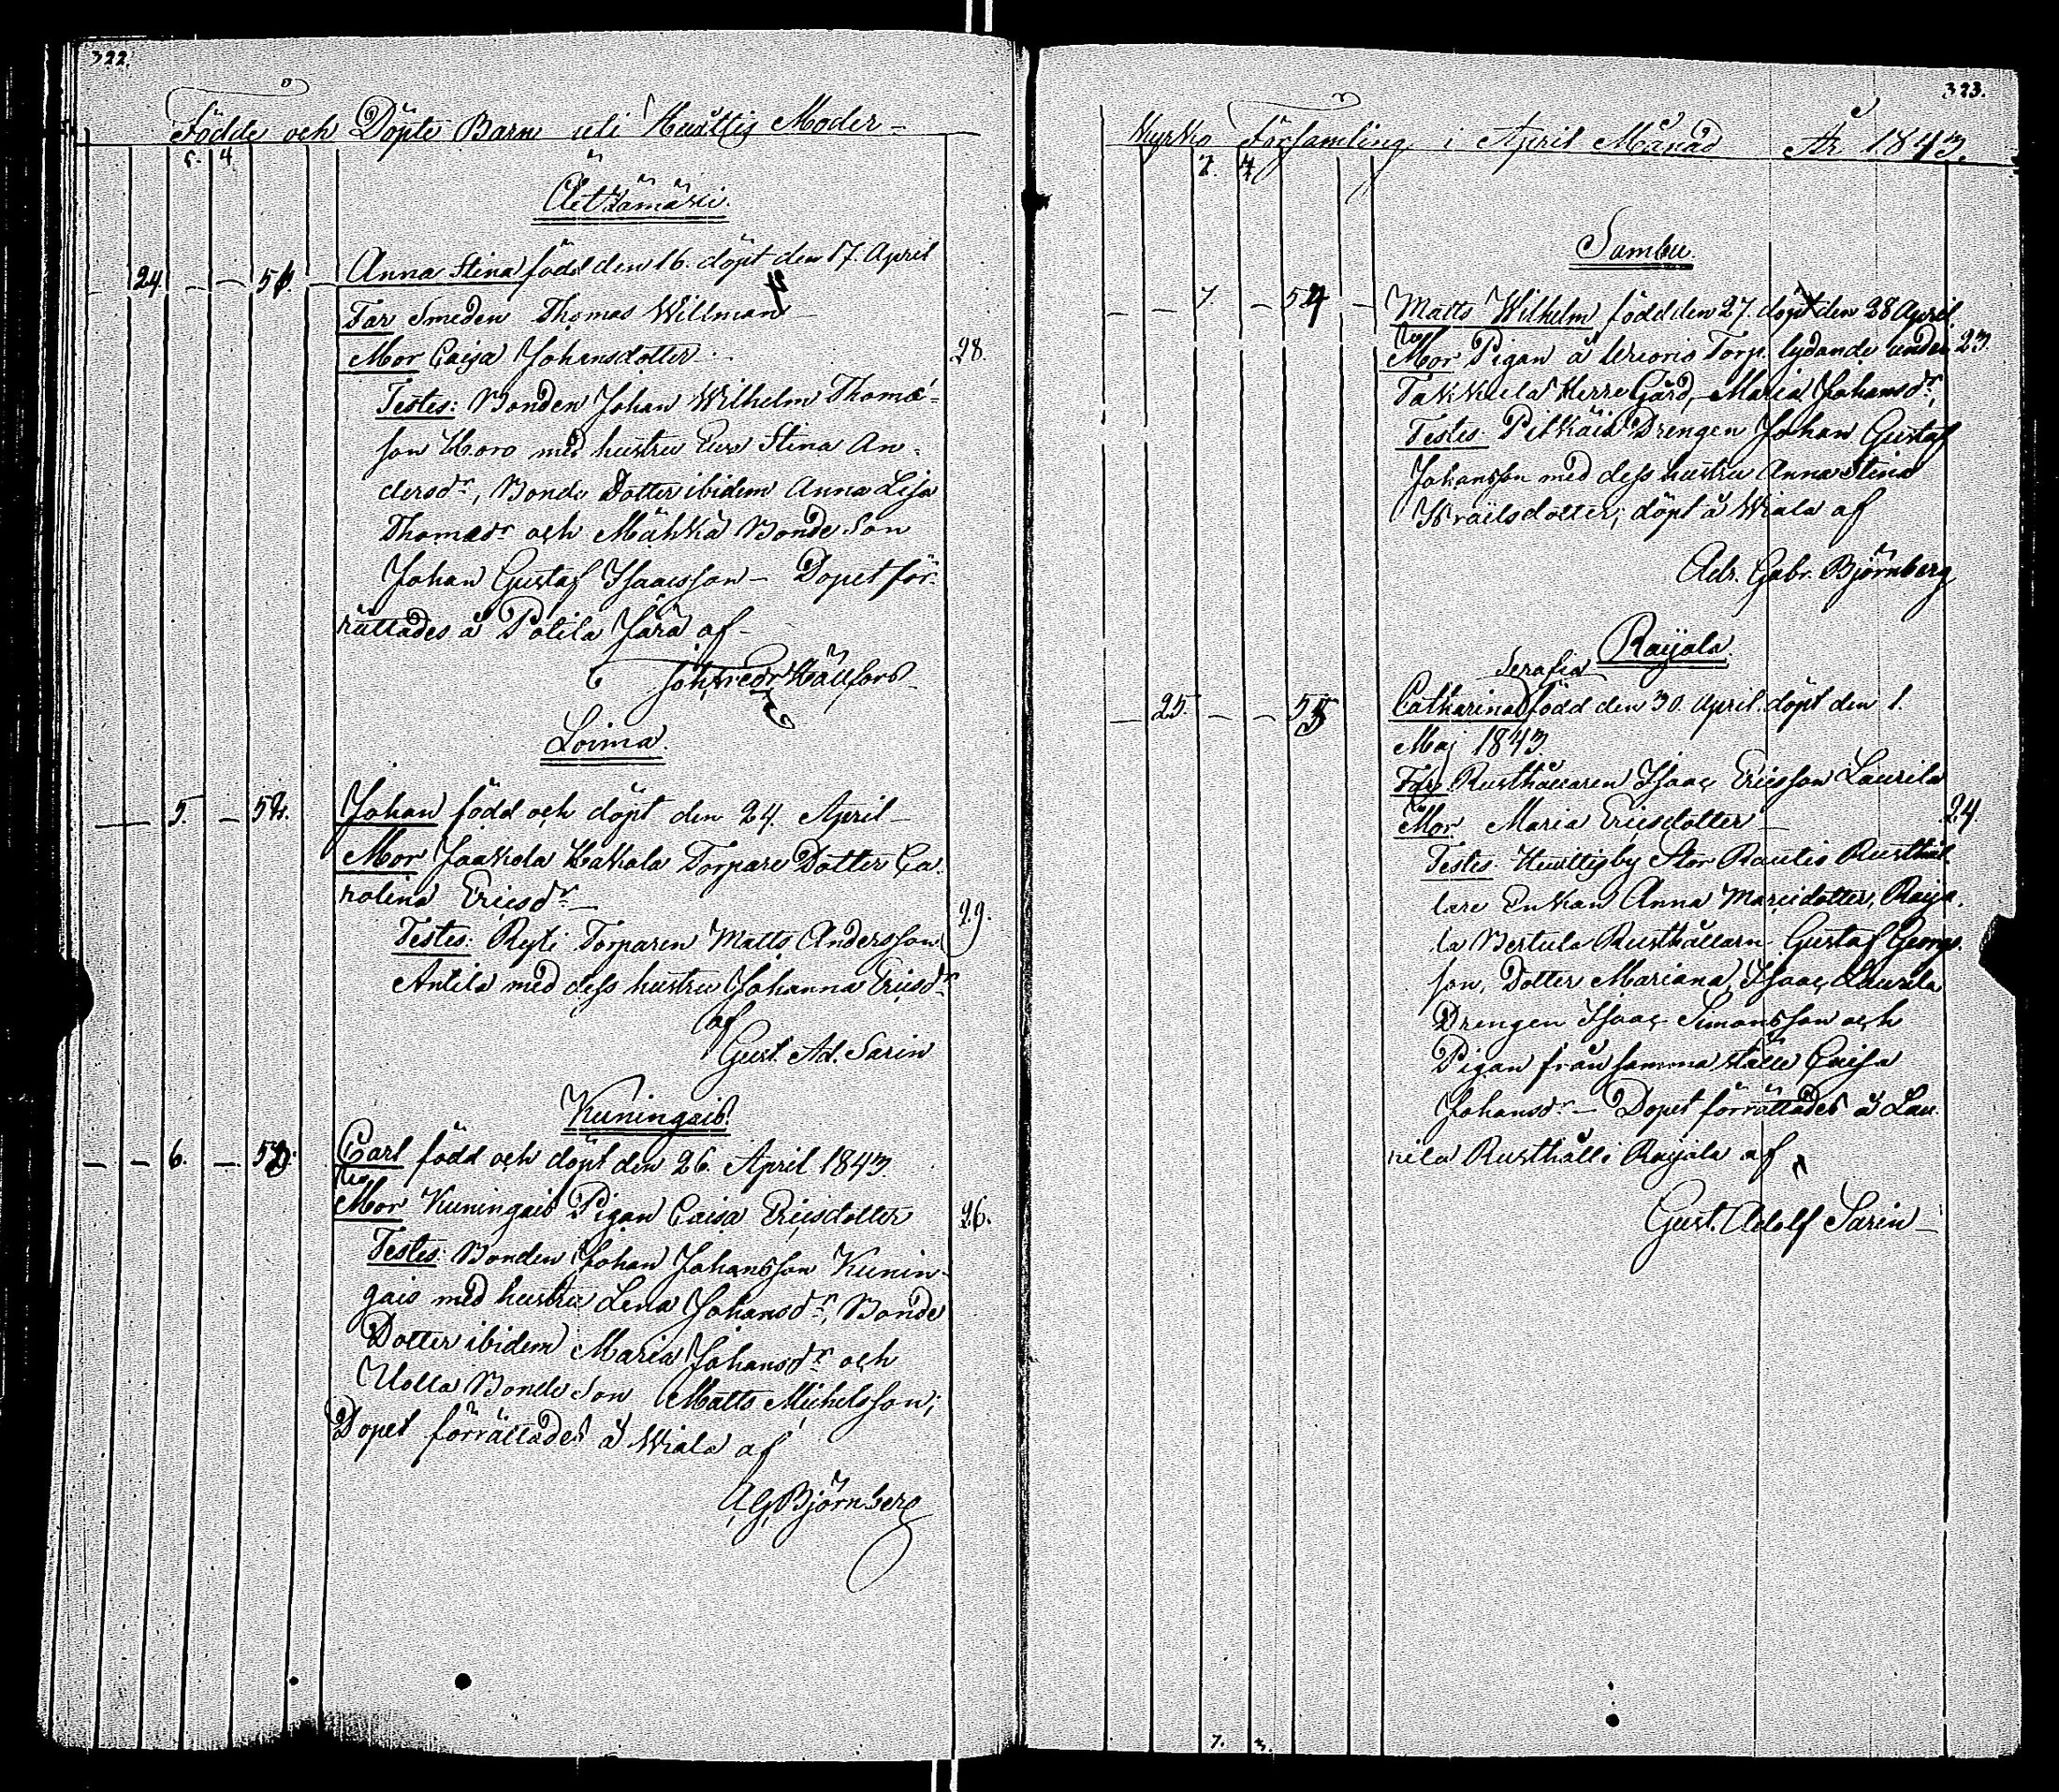 322.
Födde och Döpte Barn uti Huittis Moder-
5. 4
Aettämäki.
24. — — 51. Anna Stina född den 16. döpt den 17. April
Far Smeden Thomas Willman
Mor Caisa Johansdotter 28.
Testes: Bonden Johan Wilhelm Thomæ-
son Horo med hustru Eva Stina An-
dersdr, Bonde Dotter ibidem Anna Lisa
Thomædr och Mähkä Bonde Son
Johan Gustaf Isaacsson — Dopet för-
rättades å Potila Järä af
Joh. Fredr Hällfors
Loima.
— 5. — 52. Johan född och döpt den 24. April
Mor Jaakola Hakala Torpare Dotter Ca-
rolina Ericsdr 29.
Testes: Ryti Torparen Matts Andersson
Antila med dess hustru Johanna Ericsdr
af
Gust. Ad. Sarin
Kuningais.
— — 6. — 53. Carl född och döpt den 26. April 1843
Mor Kuningais Pigan Caisa Ericsdotter 26.
Testes: Bonden Johan Johansson Kunin-
gais med hustru Lena Johansdr, Bonde
Dotter ibidem Maria Johansdr och
Uolla Bonde Son Matts Michelsson;
Dopet förrättades å Wiala af
A. G. Björnberg
323.
Kyrko Församling i April Månad År 1843.
7. 4
Sambu.
— — 7. — 54 — Matts Wilhelm född den 27. döpt den 28 April
Mor Pigan å Torp. lydande under 23.
Takkula Herre Gård, Maria Johansdr,
Testes Pitkäis Drengen Johan Gustaf
Johansson med dess hustru Anna Stina
Israelsdotter; döpt å Wiala af
Adr. Gabr. Björnberg
Raijala.
Serafia
— 25. — — 55 Catharina född den 30. April. döpt den 1.
Maj 1843.
Far Rusthållaren Isaac Ericsson Laurila
Mor Maria Ericsdotter 24.
Testes Huittisby Stor Rautio Rusthål-
lare Enkan Anna Marcidotter, Raija-
la Bertula Rusthållarn Gustaf Georgs-
son, Dotter Mariana, Isaac Laurila
Drengen Isaac Simonsson och
Pigan från samma ställe Caisa
Johansdr — Dopet förrättades å Lau-
rila Rusthåll i Raijala af
Gust. Adolf Sarin
7. 3.